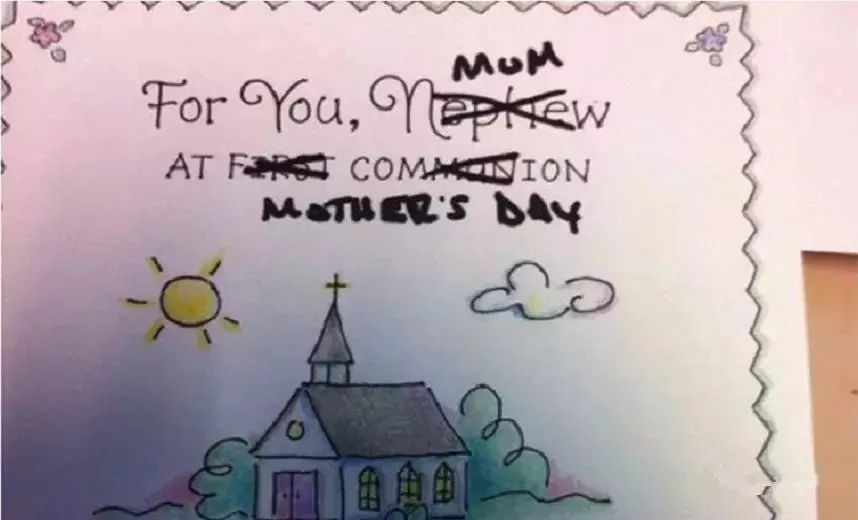 MUM
For You, Nephew
AT FIRST COMMUNION
MOTHER'S DAY